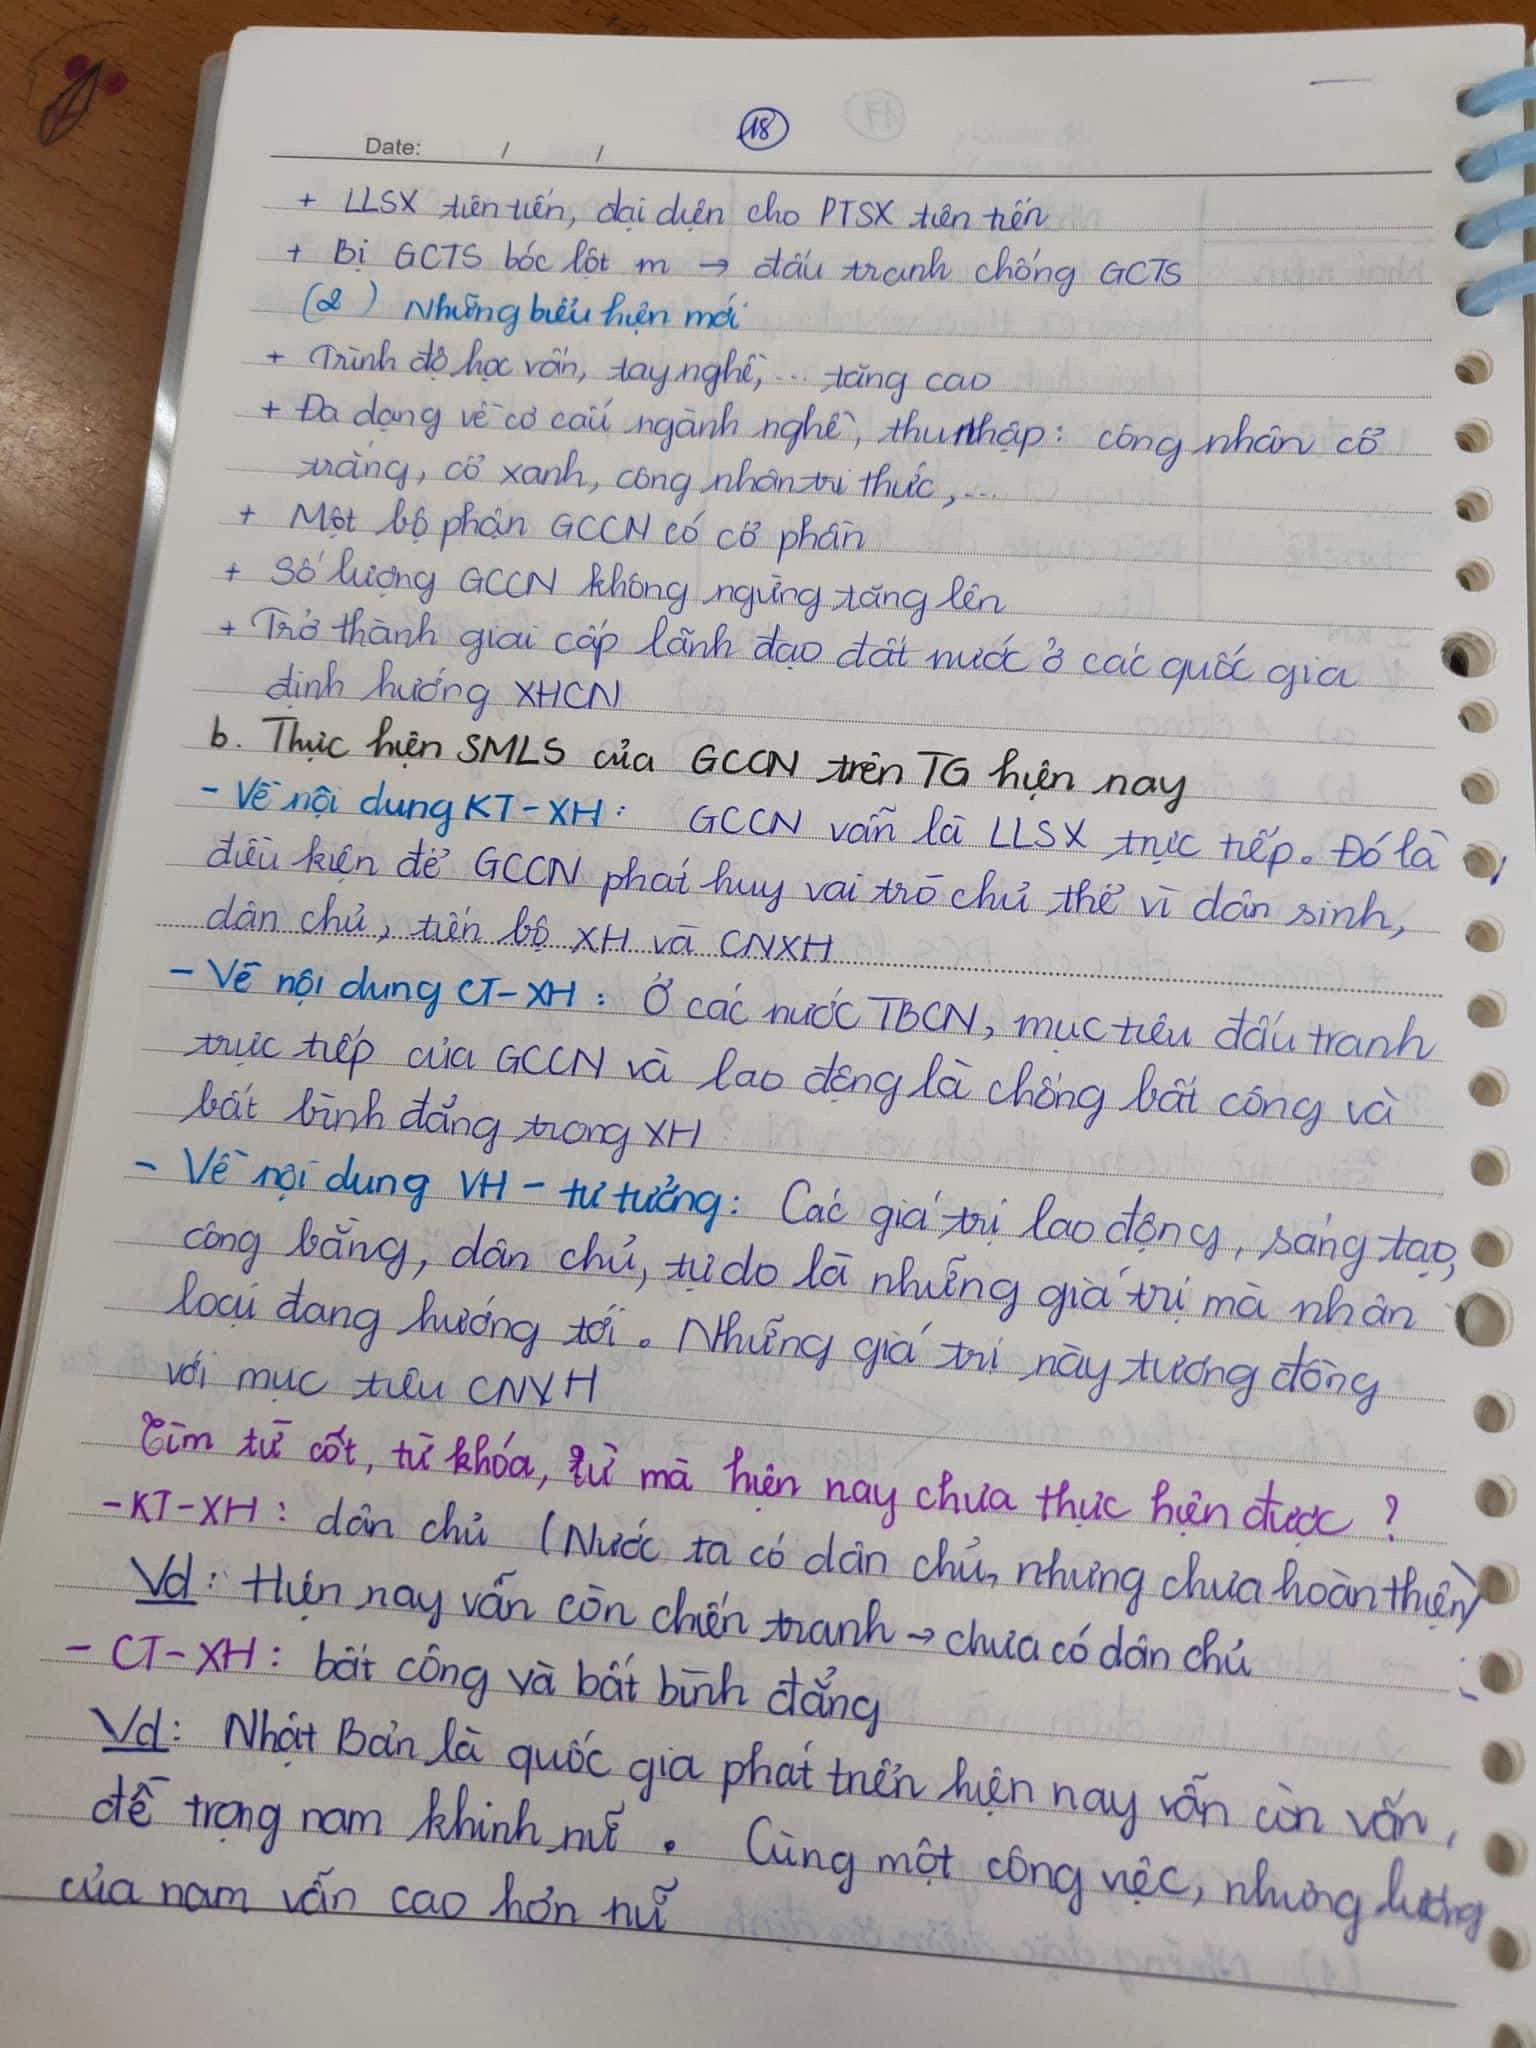 18
Date: / /
+ LLSX tiên tiến, đại diện cho PTSX tiên tiến
+ Bị GCTS bóc lột m → đấu tranh chống GCTS
(2) Những biểu hiện mới
+ Trình độ học vấn, tay nghề, ... tăng cao
+ Đa dạng về cơ cấu ngành nghề, thu nhập: công nhân cổ
trắng, cổ xanh, công nhân tri thức,...
+ Một bộ phận GCCN có cổ phần
+ Số lượng GCCN không ngừng tăng lên
+ Trở thành giai cấp lãnh đạo đất nước ở các quốc gia
định hướng XHCN
b. Thực hiện SMLS của GCCN trên TG hiện nay
- Về nội dung KT-XH: GCCN vẫn là LLSX trực tiếp. Đó là
điều kiện để GCCN phát huy vai trò chủ thể vì dân sinh,
dân chủ, tiến bộ XH và CNXH
- Về nội dung CT-XH: Ở các nước TBCN, mục tiêu đấu tranh
trực tiếp của GCCN và lao động là chống bất công và
bất bình đẳng trong XH
- Về nội dung VH - tư tưởng: Các giá trị lao động, sáng tạo,
công bằng, dân chủ, tự do là những giá trị mà nhân
loại đang hướng tới. Những giá trị này tương đồng
với mục tiêu CNXH
Tìm từ cốt, từ khóa, từ mà hiện nay chưa thực hiện được?
- KT-XH: dân chủ (Nước ta có dân chủ, nhưng chưa hoàn thiện)
Vd: Hiện nay vẫn còn chiến tranh → chưa có dân chủ
- CT-XH: bất công và bất bình đẳng
Vd: Nhật Bản là quốc gia phát triển hiện nay vẫn còn vấn
đề trọng nam khinh nữ. Cùng một công việc, nhưng lương
của nam vẫn cao hơn nữ